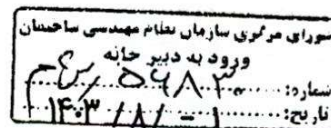 شورای مرکزی سازمان نظام مهندسی ساختمان
ورود به دبیر خانه
شماره: ۵۶۸۳
تاریخ: ۱۴۰۳/۸/۰۱